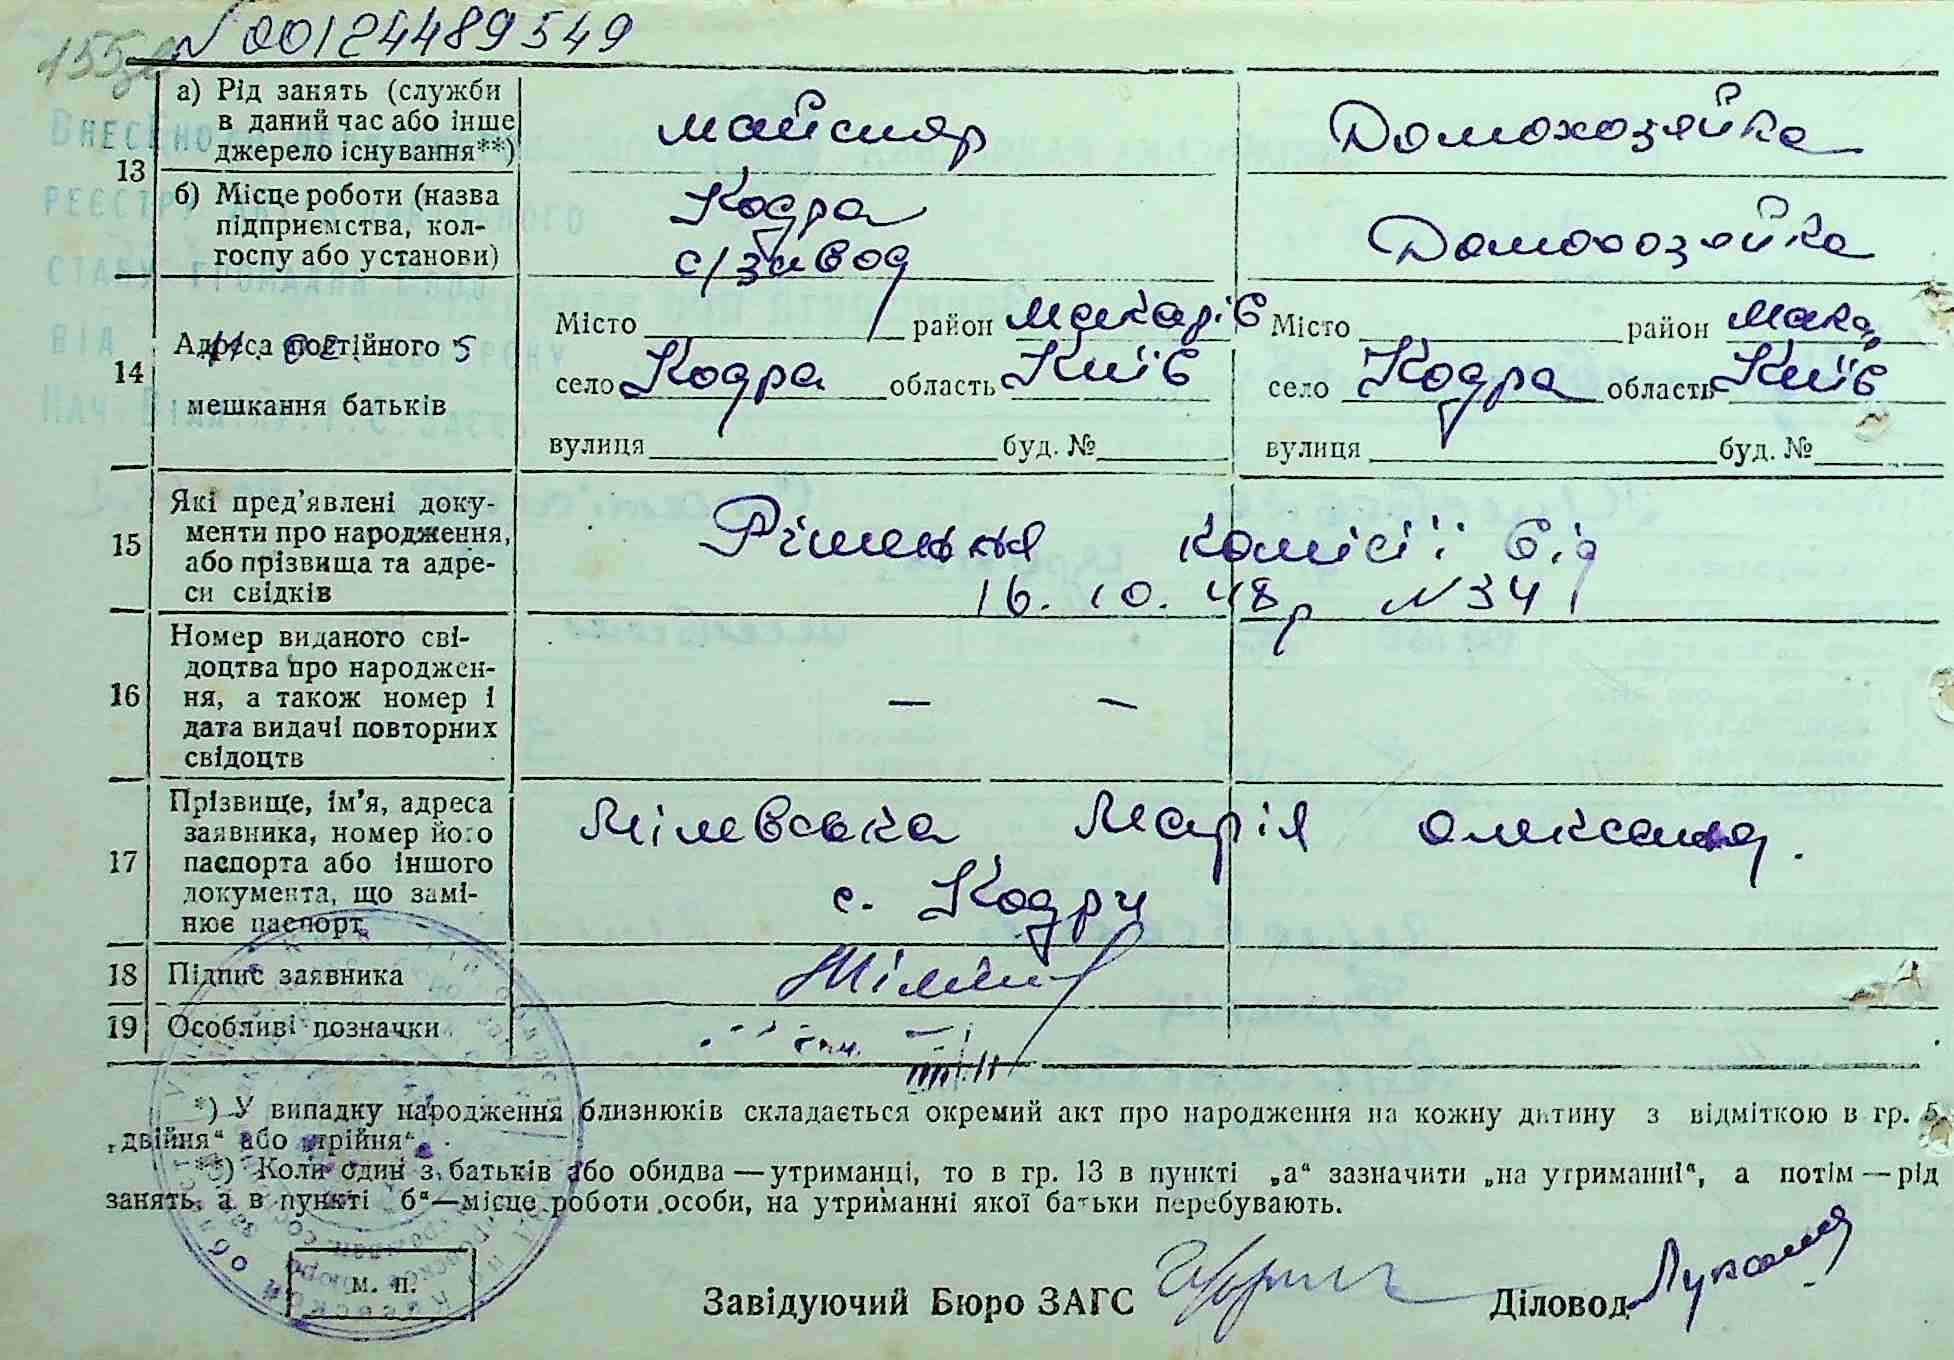 155зв
N 00124489549
13
а) Рід занять (служби
в даний час або інше
джерело існування**)
майстяр
Домохозяйка
б) Місце роботи (назва
підприємства, кол-
госпу або установи)
Кодра
с/завод
Домохозяйка
14
Адреса постійного
мешкання батьків
Місто район Макарів Місто район Мака
село Кодра область Київ село Кодра область Київ
вулиця буд. № вулиця буд. №
15
Які пред’явлені доку-
менти про народження,
або прізвища та адре-
си свідків
Рішення комісії від
16. 10. 48р N 341
16
Номер виданого сві-
доцтва про народжен-
ня, а також номер і
дата видачі повторних
свідоцтв
— —
17
Прізвище, ім’я, адреса
заявника, номер його
паспорта або іншого
документа, що замі-
нює паспорт
Мілевська Марія Олександ.
с. Кодри
18 Підпис заявника
19 Особливі позначки
*) У випадку народження близнюків складається окремий акт про народження на кожну дитину з відміткою в гр. 5
„двійня“ або „трійня“.
**) Коли один з батьків або обидва — утриманці, то в гр. 13 в пункті „а“ зазначити „на утриманні“, а потім — рід
занять, а в пункті „б“ — місце роботи особи, на утриманні якої батьки перебувають.
м. п.
Завідуючий Бюро ЗАГС
Діловод